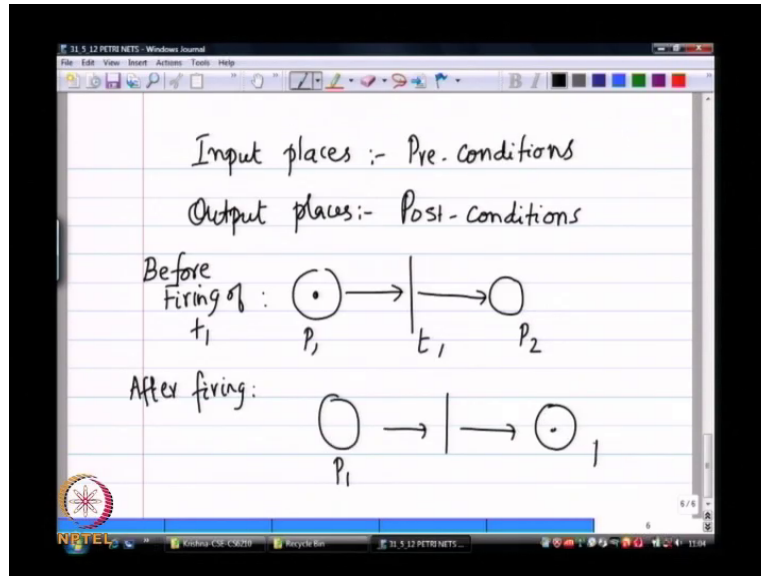 31_5_12 PETRI NETS - Windows Journal
File Edit View Insert Actions Tools Help
B I
Input places :- Pre-conditions
Output places:- Post-conditions
Before
Firing of :
t1
P1 t1 P2
After firing:
P1
6/6
6
NPTEL
Krishna-CSE-CS6210 Recycle Bin 31_5_12 PETRI NETS ... 11:04